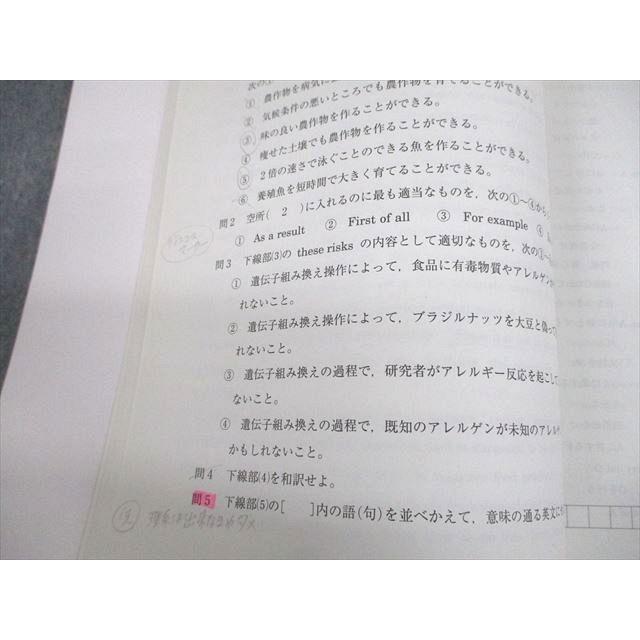 次の①
① 農作物を病気に
② 気候条件の悪いところでも農作物を育てることができる。
③ 味の良い農作物を作ることができる。
④ 痩せた土壌でも農作物を作ることができる。
⑤ 2倍の速さで泳ぐことのできる魚を作ることができる。
⑥ 養殖魚を短時間で大きく育てることができる。
問2 空所( 2 )に入れるのに最も適当なものを，次の①～④から
① As a result ② First of all ③ For example ④
問3 下線部(3)の these risks の内容として適切なものを，次の①
① 遺伝子組み換え操作によって，食品に有毒物質やアレルゲン
れないこと。
② 遺伝子組み換え操作によって，ブラジルナッツを大豆と偽って
れないこと。
③ 遺伝子組み換えの過程で，研究者がアレルギー反応を起こして
ないこと。
④ 遺伝子組み換えの過程で，既知のアレルゲンが未知のアレル
かもしれないこと。
問4 下線部(4)を和訳せよ。
問5 下線部(5)の[ ]内の語(句)を並べかえて，意味の通る英文に